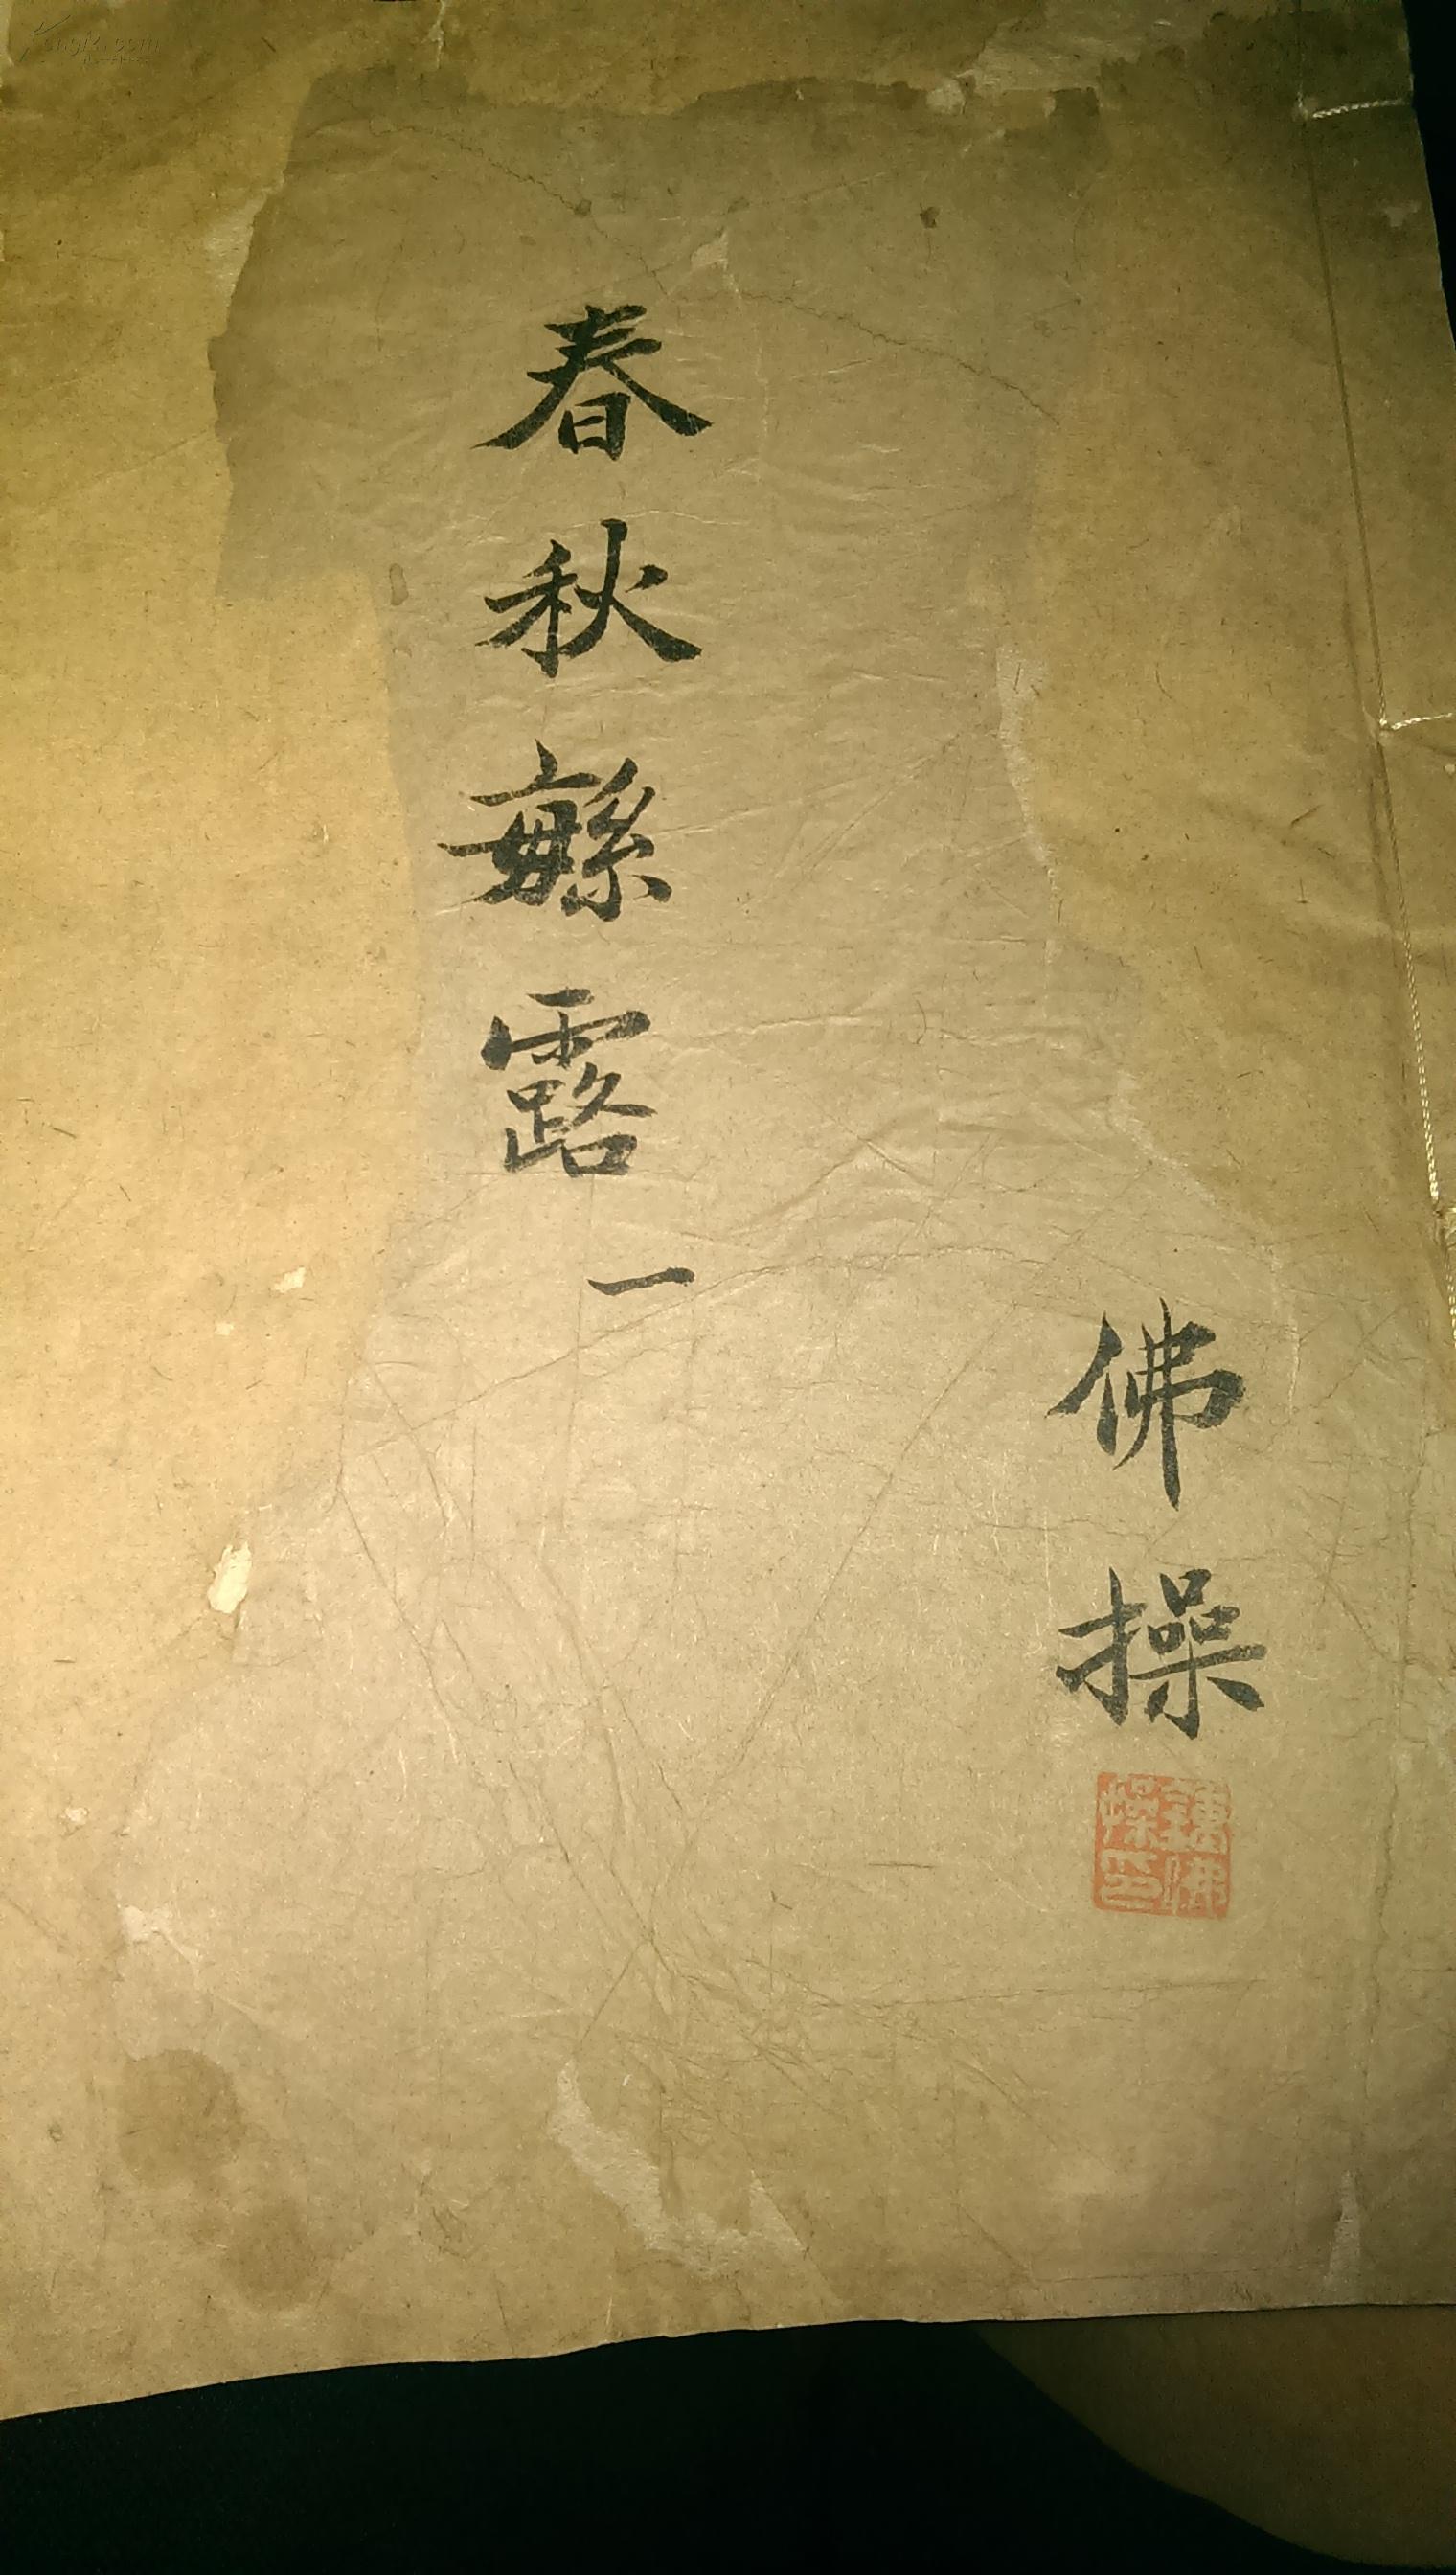 佛操
鍾佛
操印
春秋緐露 一